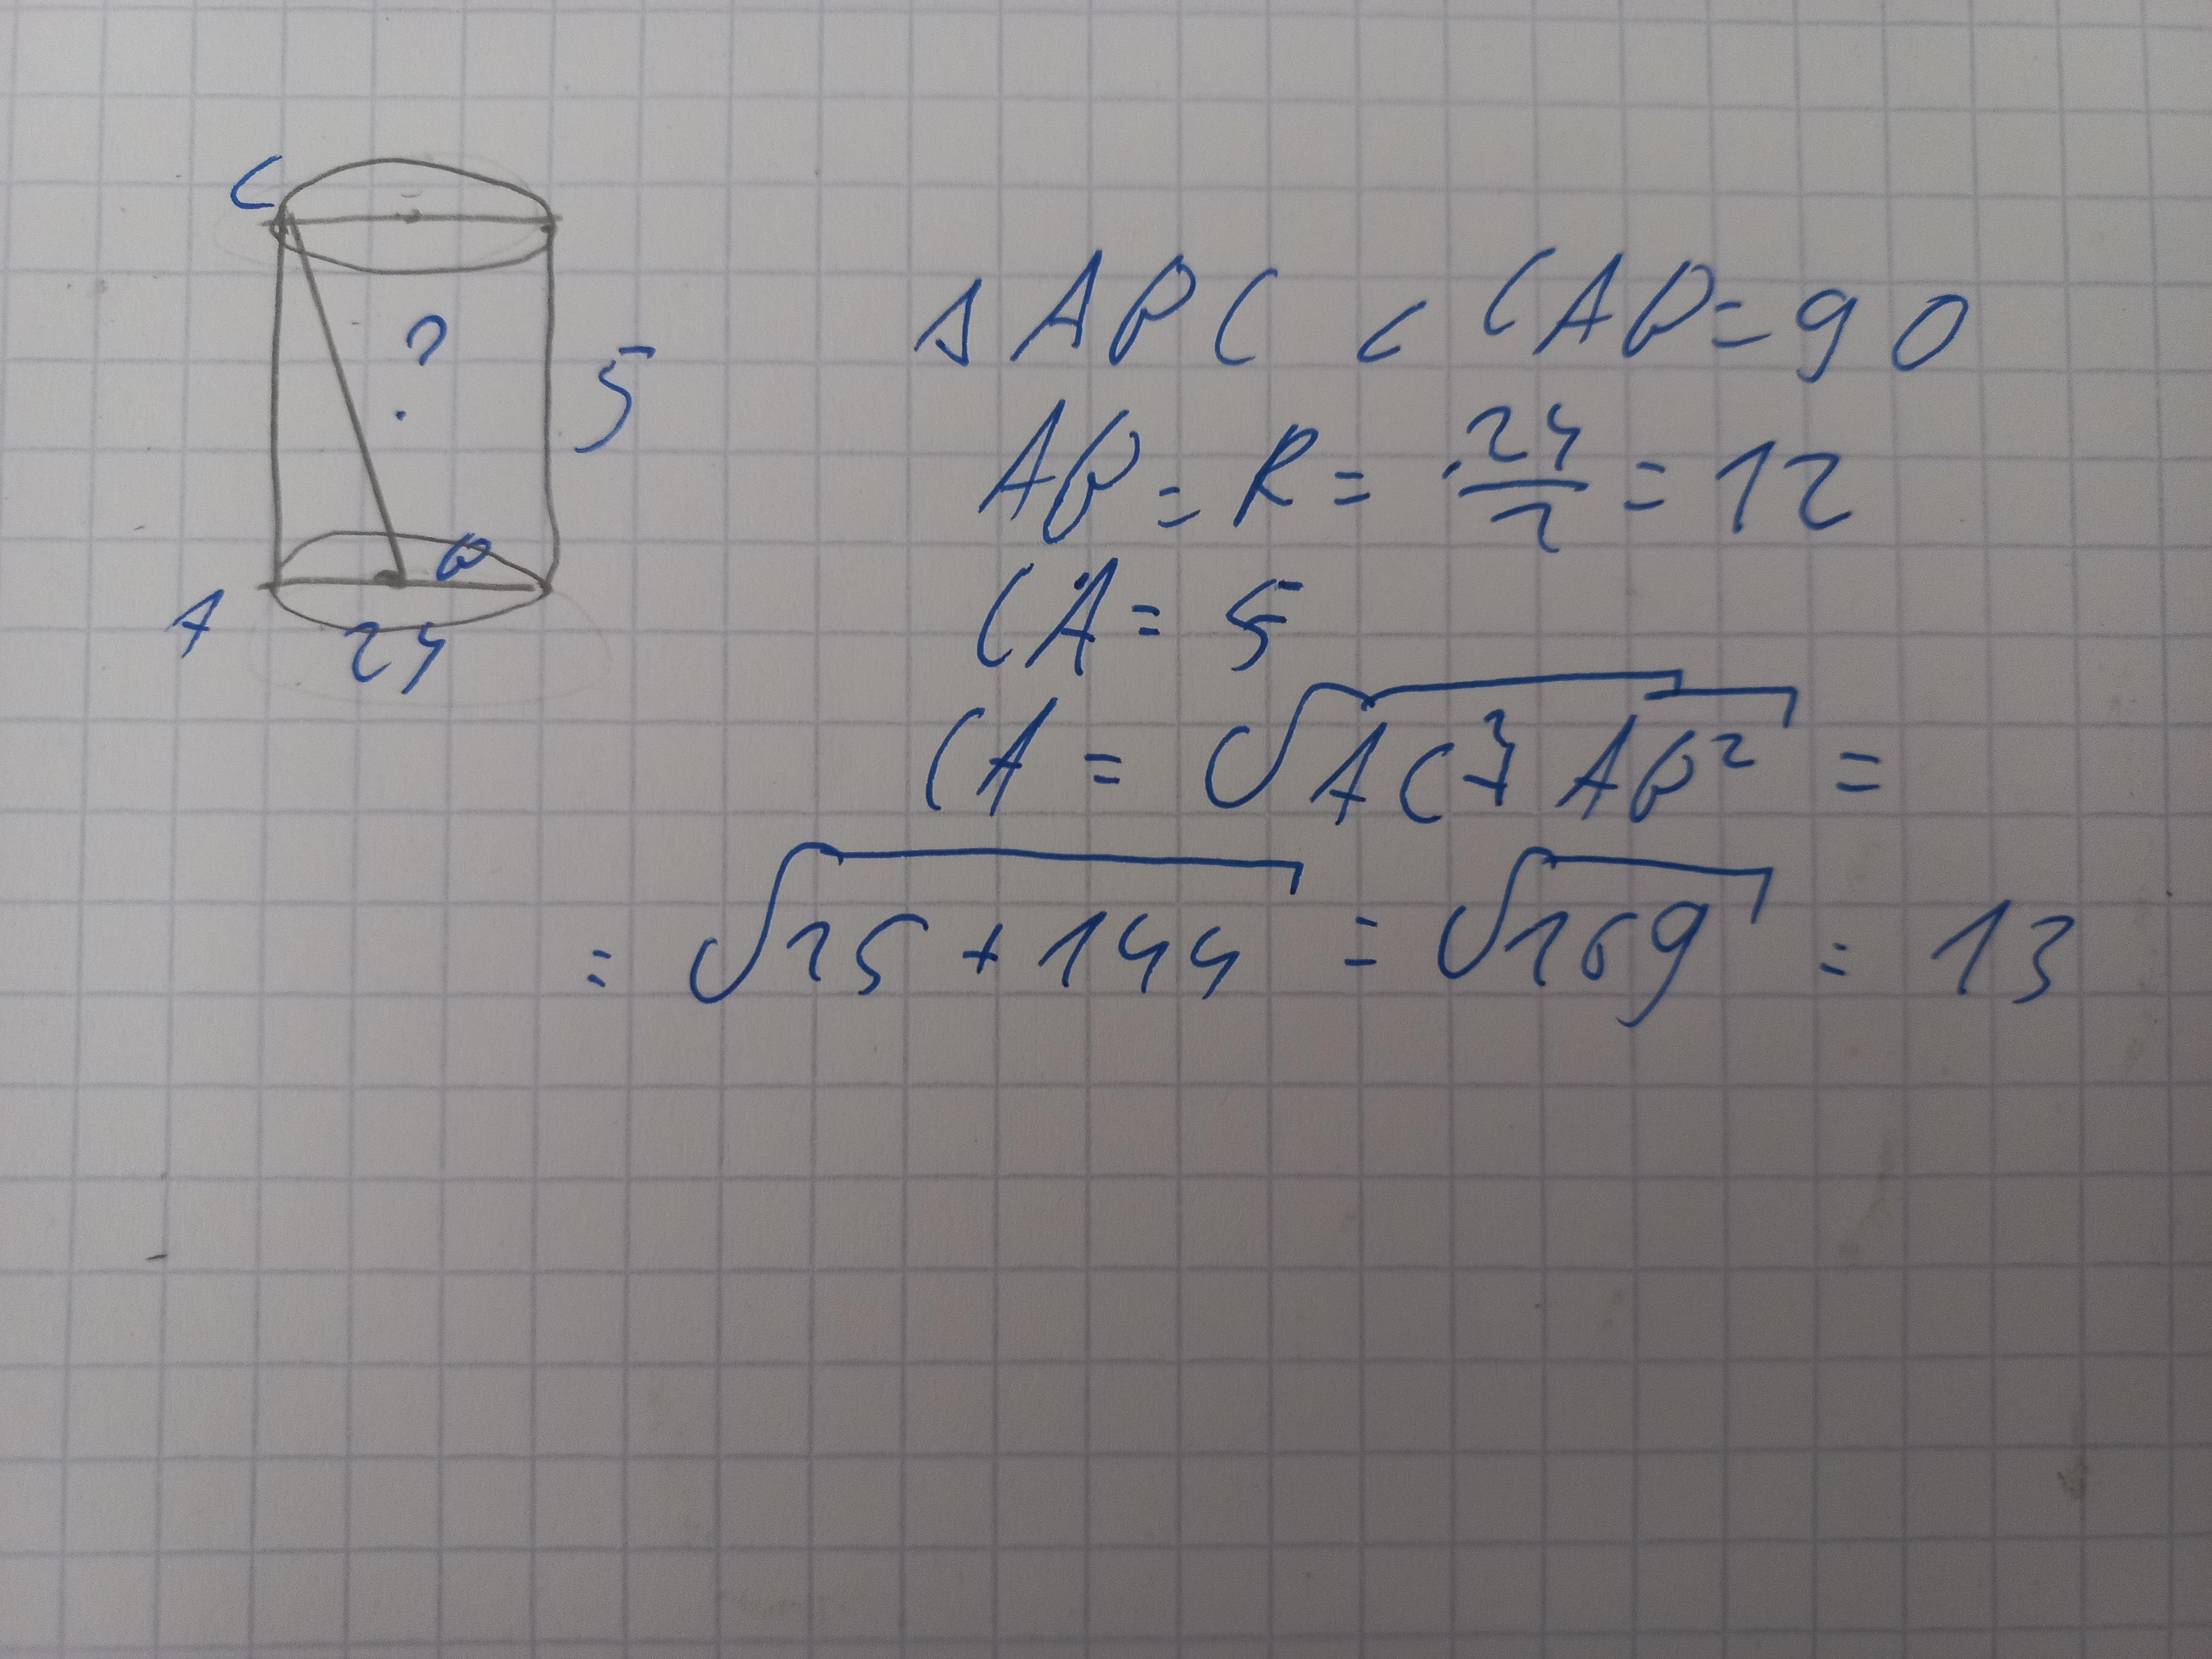 C
?
5
B
A
24
Δ ABC < CAB = 90
AB = R = 24/2 = 12
CA = 5
CA = √AC²+AB² =
= √25 + 144 = √169 = 13